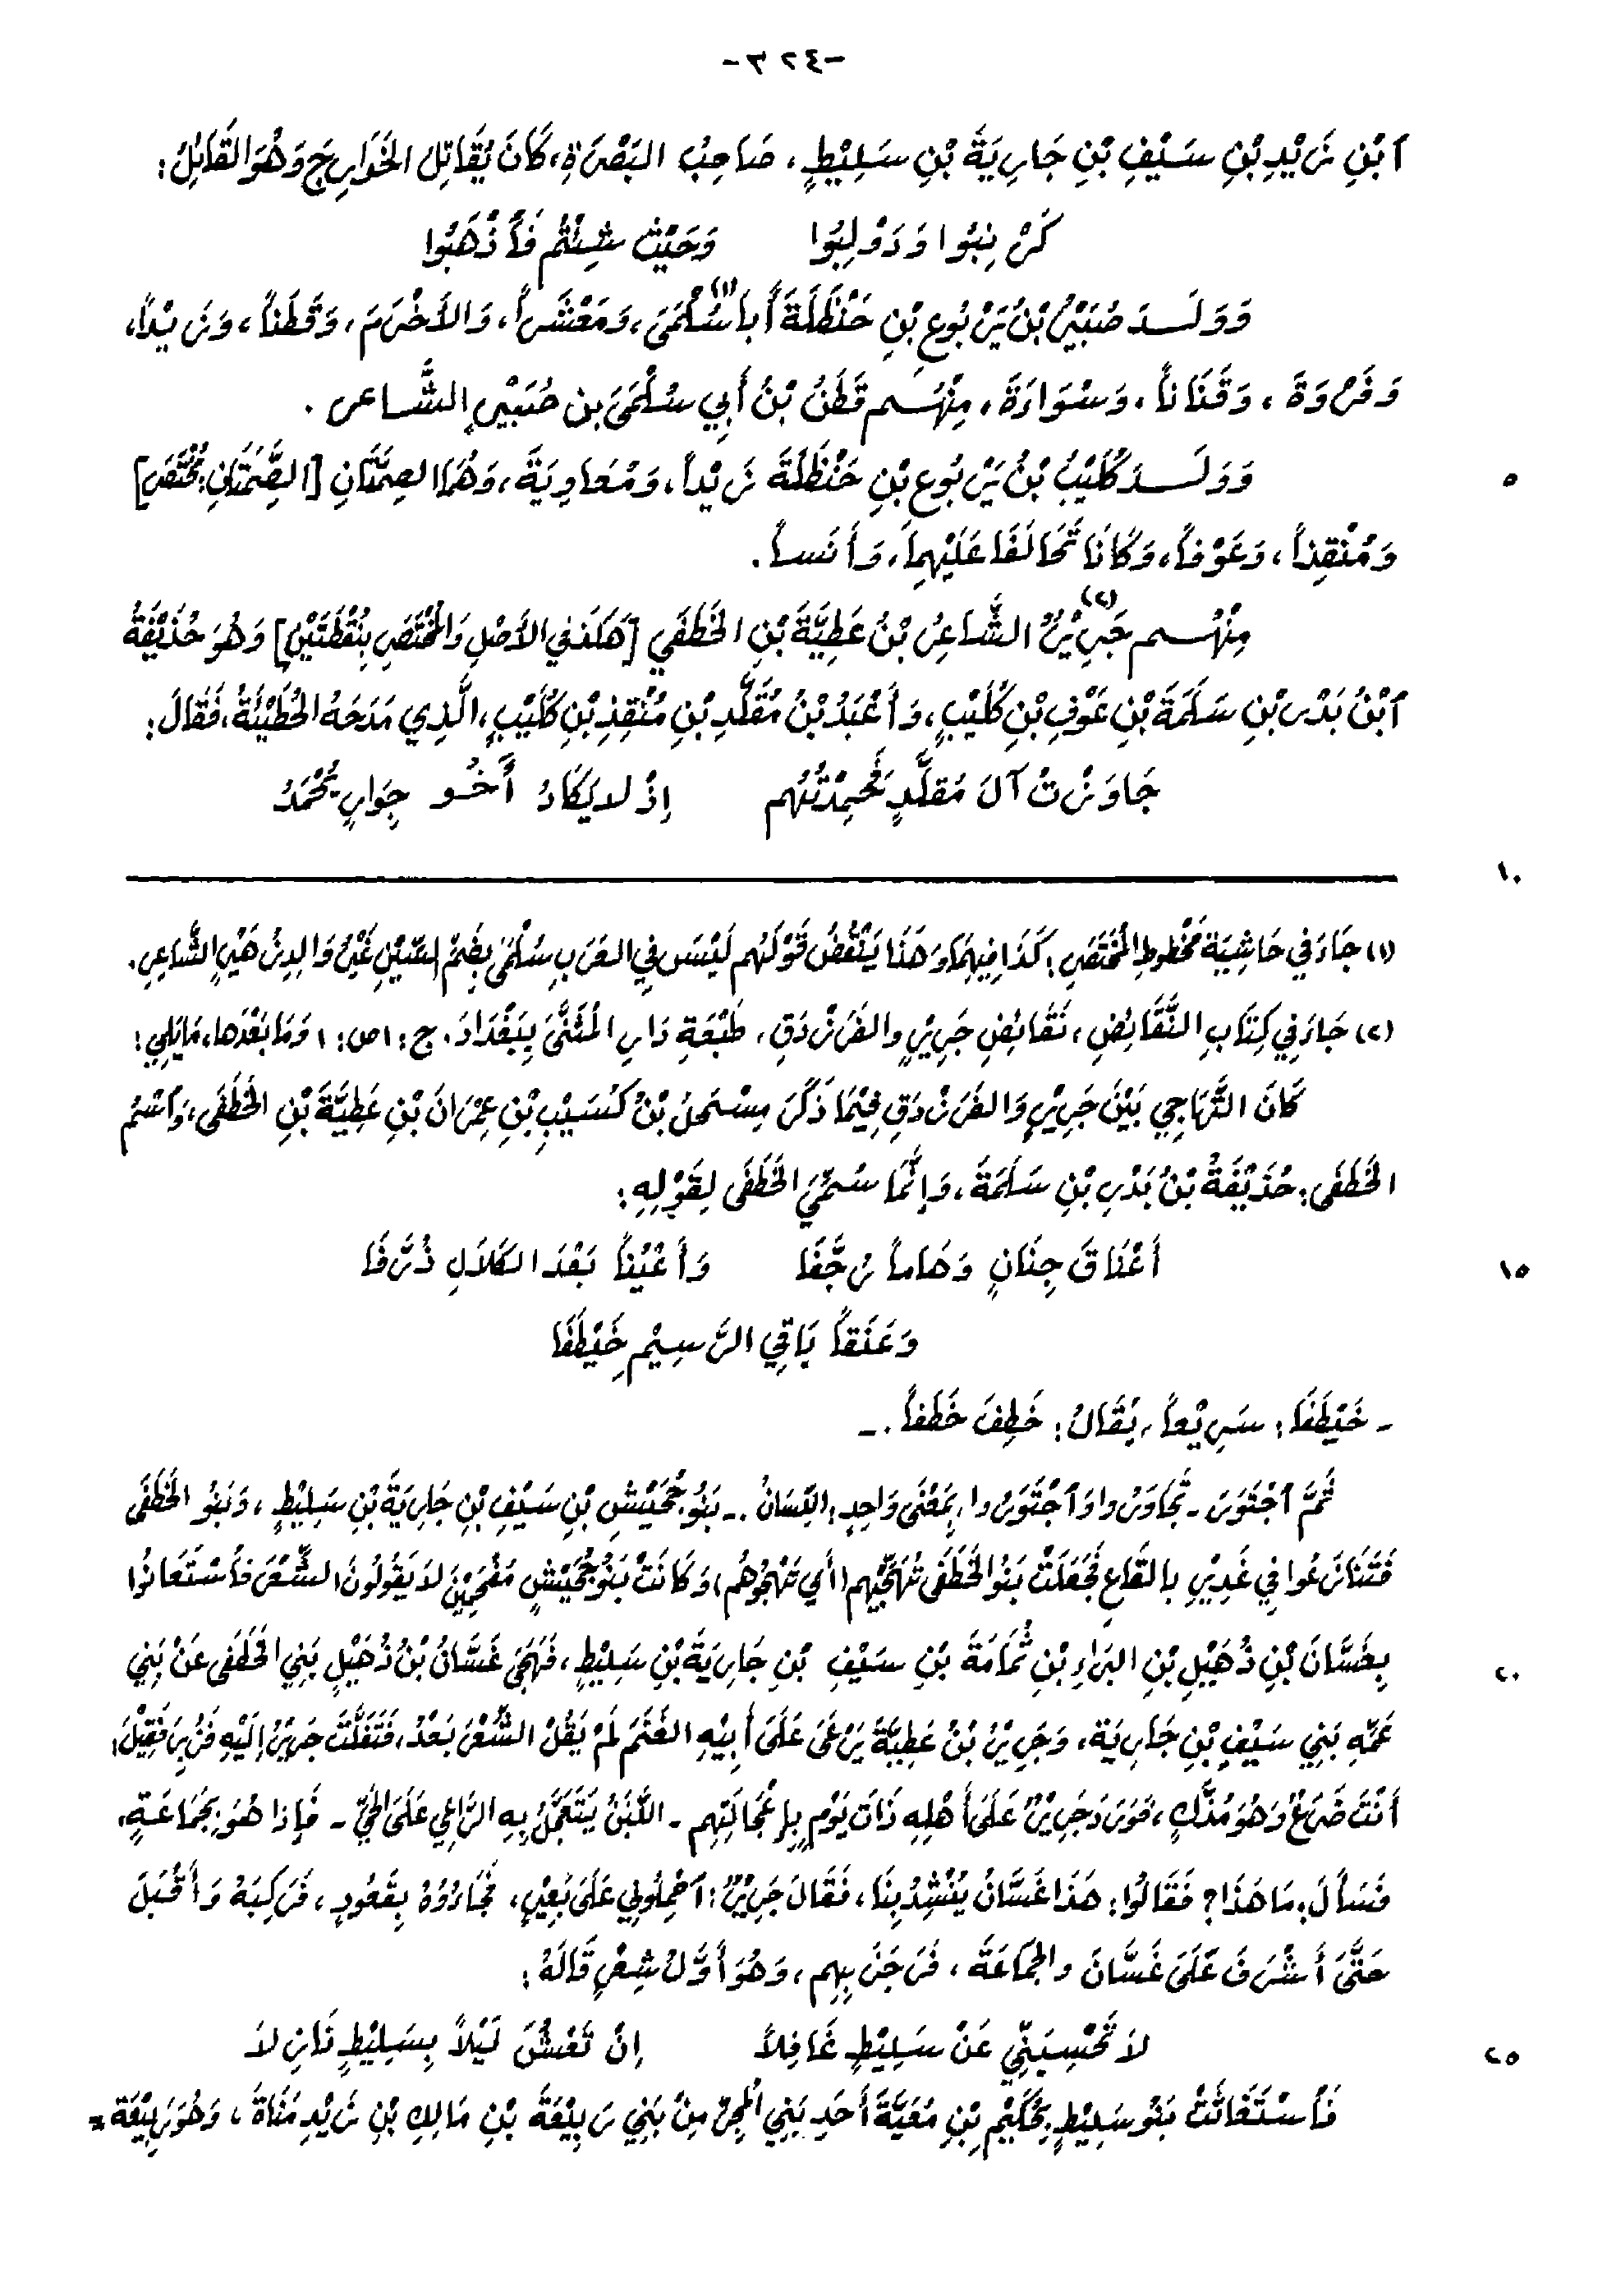 -٣٢٤-
ٱبْنِ زَيْدِ بْنِ سَيْفِ بْنِ جَارِيَةَ بْنِ سَلِيْطٍ، صَاحِبُ البَصْرَةِ، كَانَ يُقَاتِلُ الخَوَارِجَ وَهُوَ القَائِلُ:
كَرْنِبُوا وَدَوْلِبُوا وَحَيْثُ شِئْتُم فَٱذْهَبُوا
وَوَلَدَ صُبَيْرُ بْنُ يَرْبُوعِ بْنِ حَنْظَلَةَ أَبا سُلْمَىَ(١)، وَمَعْشَراً، وَالأَخْرَمَ، وَقَطَناً، وَزَيْداً،
وَفَرْوَةَ، وَقَنَاناً، وَسْوَاءَةَ، مِنْهُم قَطَنُ بْنُ أَبِي سُلْمَىَ بن صُبَيْرٍ الشَّاعر.
وَوَلَدَ كُلَيْبُ بْنُ يَرْبُوعِ بْنِ حَنْظَلَةَ زَيْداً، وَمُعَاوِيَةَ، وَهُمَا الصِمَّتَانِ [الصَّمَتَانِ: مُخْتَصَر]
٥
وَمُنْقِذاً، وَعَوْفاً، وَكَانَا تَحَالَفَا عَلَيْهِمَا، وَأَنَساً.
مِنْهُم جَرِيْرٌ(٢) الشَّاعِرُ بْنُ عَطِيَّةَ بْنِ الخَطَفَي [هَكَذَا في الأَصْلِ وَالمُخْتَصَرِ بِنُقْطَتَيْنِ] وَهُوَ حُذَيْفَةُ
ٱبْنُ بَدْرِ بْنِ سَلَمَةَ بْنِ عَوْفِ بْنِ كُلَيْبٍ، وَأَعْبَدُ بْنُ مُقَلَّدِ بْنِ مُنْقِذِ بْنِ كُلَيْبٍ، الَّذِي مَدَحَهُ الحُطَيْئَةُ، فَقَالَ:
جَاوَرْتُ آلَ مُقَلَّدٍ فَحَمِدْتُهُم إِذْ لا يَكَادُ أَخُو جِوَارٍ يُحْمَدُ
١٠
(١) جَاءَ في حَاشِيَةِ مَخْطُوطِ المُخْتَصَرِ: كَذَا فِيهِمَا وَهَذَا يَنْقُضُ قَوْلَهُم لَيْسَ فِي العَرَبِ سُلْمَى بِضَمِّ السِّيْنِ غَيْرُ وَالِدِ زُهَيْرٍ الشَّاعِرِ.
(٢) جَاءَ فِي كِتَابِ النَّقَائِضِ، نَقَائِضِ جَرِيْرٍ والفَرَزْدَقِ، طَبْعَةِ دَارِ المُثَنَّى بِبَغْدَادَ. ج: ١ ص: ١ وَمَا بَعْدَها، مَا يَلِي:
كَانَ التَّهَاجِي بَيْنَ جَرِيْرٍ وَالفَرَزْدَقِ فِيْمَا ذَكَرَ مِسْحَلُ بْنُ كُسَيْبِ بْنِ عِمْرَانَ بْنِ عَطِيَّةَ بْنِ الخَطَفَى، وَٱسْمُ
الخَطَفَى: حُذَيْفَةُ بْنُ بَدْرِ بْنِ سَلَمَةَ، وَإِنَّمَا سُمِّيَ الخَطَفَى لِقَوْلِهِ:
أَعْنَاقَ جِنَانٍ وَهَاماً رُجَّفَا وَأَعْيُناً بَعْدَ الكَلاَلِ ذُرَّفَا
١٥
وَعَنَقاً بَاقِي الرَّسِيْمِ خَيْطَفَا
- خَيْطَفَا: سَرِيْعاً، يُقَالُ: خَطِفَ خَطَفاً. -
ثُمَّ ٱجْتَوَرَ - تَجَاوَرُوا وَٱجْتَوَرُوا، بِمَعْنَى وَاحِدٍ: اللِّسَانُ. - بَنُو جُحَيْشِ بْنِ سَيْفِ بْنِ جَارِيَةَ بْنِ سَلِيْطٍ، وَبَنُو الخَطَفَى
فَتَنَازَعُوا فِي غَدِيْرٍ بالقَاعِ فَجَعَلَتْ بَنُو الخَطَفَى تُهَجِّيْهِم (أَي تَهْجُوهُم) وَكَانَتْ بَنُو جُحَيْشٍ مُفْحَمِيْنَ لاَ يَقُولُونَ الشِّعْرَ فَٱسْتَعَانُوا
بِغَسَّانَ بْنِ ذُهَيْلِ بْنِ البَرَاءِ بْنِ ثُمَامَةَ بْنِ سَيْفِ بْنِ جَارِيَةَ بْنِ سَلِيْطٍ، فَهَجَىَ غَسَّانُ بْنُ ذُهَيْلٍ بَنِي الخَطَفَى عَنْ بَنِي
٢٠
عَمِّهِ بَنِي سَيْفِ بْنِ جَارِيَة، وَجَرِيْرُ بْنُ عَطِيَّةَ يَرْعَىَ عَلَىَ أَبِيْهِ الغَنَمَ لَمْ يَقُلْ الشِّعْرَ بَعْدُ، فَتَفَلَّتَ جَرِيْرٌ إِلَيْهِ فَزُبِرَ فَقِيْلَ:
أَنْتَ ضَرَعٌ وَهُوَ مُذَكٍّ، فَوَرَدَ جَرِيْرٌ عَلَىَ أَهْلِهِ ذَاتَ يَوْمٍ بِإِعْجَالَتِهِم - اللَّبَنُ يَتَعَجَّلُ بِهِ الرَّاعِي عَلَىَ الحَيِّ - فَإِذا هُوَ بِجَمَاعَةٍ،
فَسَأَلَ: مَا هَذَا؟ فَقَالُوا: هَذَا غَسَّانُ يُنْشِدُ بِنَا، فَقَالَ جَرِيْرٌ: ٱحْمِلُونِي عَلَىَ بَعِيْرٍ، فَجَاءُوْهُ بِقَعُودٍ، فَرَكِبَهُ وَأَقْبَلَ
حَتَّىَ أَشْرَفَ عَلَىَ غَسَّانَ والجَمَاعَةَ، فَرَجَزَ بِهِم، وَهُوَ أَوَّلُ شِعْرٍ قَالَهُ:
لاَ تَحْسِبَنِّي عَنْ سَلِيْطٍ غَافِلاً إِنْ تَعْشُ لَيْلاً بِسَلِيْطٍ نَازِلاَ
٢٥
فَٱسْتَغَاثَتْ بَنُو سَلِيْطٍ بِحَكِيْمِ بْنِ مُعَيَّةَ أَحَدِ بَنِي المَجَرِّ مِنْ بَنِي رَبِيْعَةَ بْنِ مَالِكِ بْنِ زَيْدِ مَنَاةَ، وَهُوَ رَبِيْعَة =